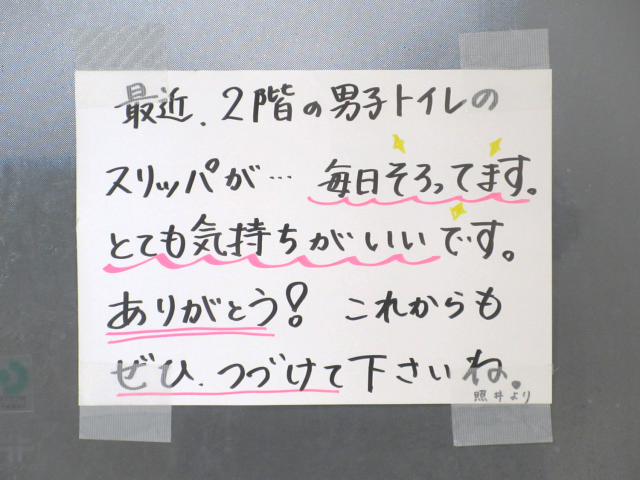 最近、2階の男子トイレの
スリッパが… 毎日そろってます。
とても気持ちがいいです。
ありがとう! これからも
ぜひ、つづけて下さいね。
照井より